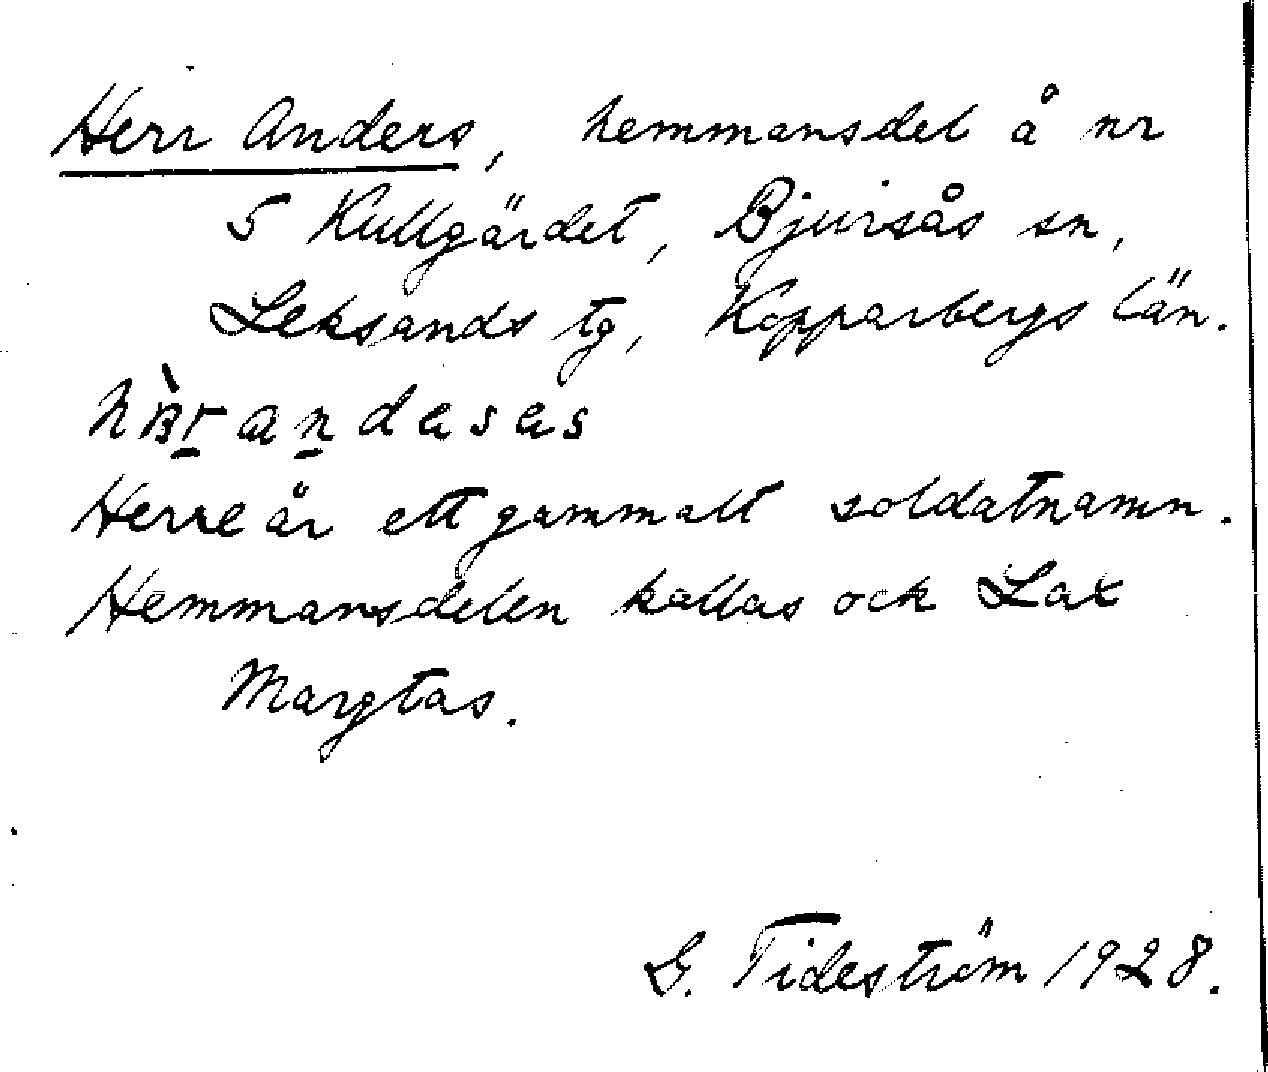 Herr Anders, hemmansdel å nr
5 Kullgärdet, Bjursås sn,
Leksands tg, Kopparbergs län.
hàrandasas
Herre är ett gammalt soldatnamn.
Hemmansdelen kallas ock Lax
Margtas.
G. Tideström 1928.